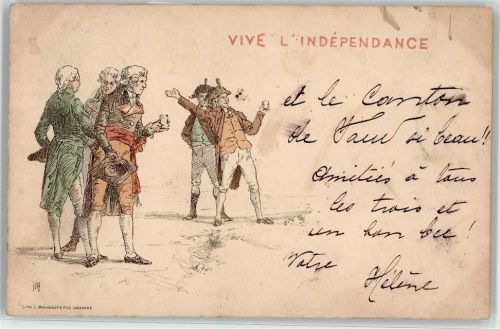 VIVE L'INDÉPENDANCE
et le canton
de Vaud si beau!!
Amitiés à tous
les trois et
un bon bec!
Votre
Hélène